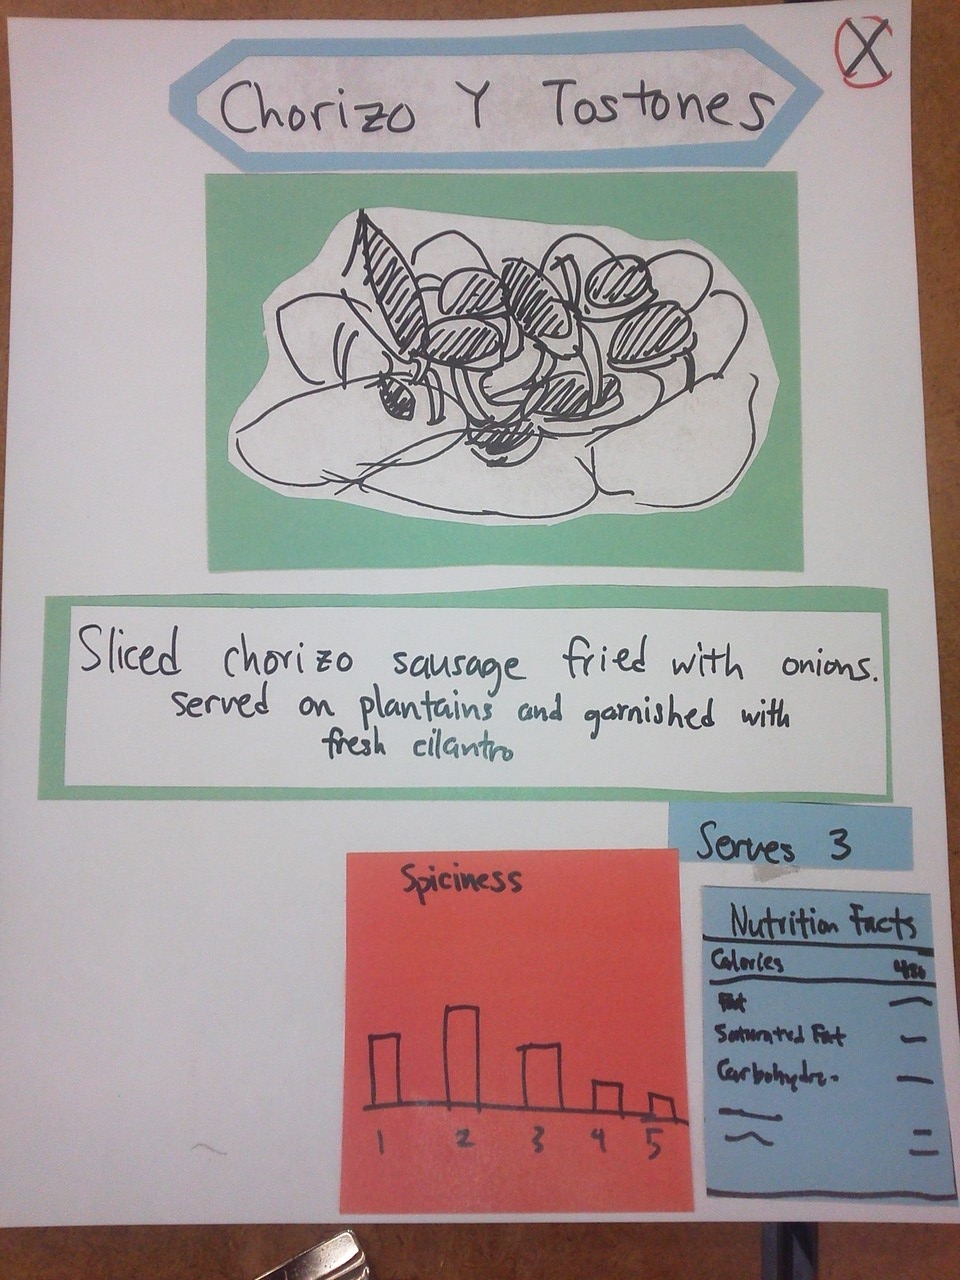 X
Chorizo Y Tostones
Sliced chorizo sausage fried with onions.
served on plantains and garnished with
fresh cilantro
Serves 3
Spiciness
1 2 3 4 5
Nutrition Facts
Calories
Fat
Saturated Fat